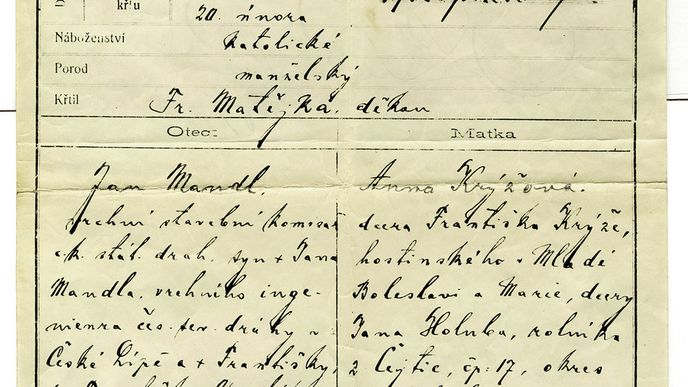 křtu
20. února
Náboženství katolické
Porod manželský
Křtil Fr. Matějka, děkan
Otec: Matka
Jan Mandl,
vrchní stavební komisař
c.k. stát. drah. syn + Jana
Mandla, vrchního inge-
nieura čes. sev. dráhy v
České Lípě a + Františky,
Anna Krýžová.
dcera Františka Krýže,
hostinského v Mladé
Boleslavi a Marie, dcery
Jana Holuba, rolníka
z Čejtic, čp. 17, okres